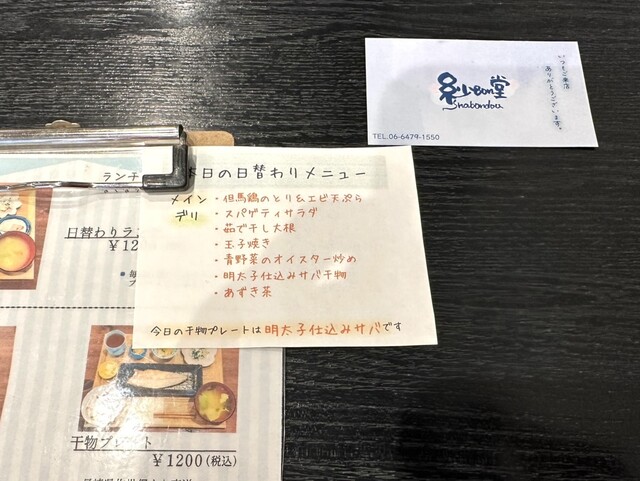 いつもご来店
ありがとうございます。
Shabondou
TEL.06-6479-1550
ランチ
本日の日替わりメニュー
メイン・但馬鶏のとり&エビ天ぷら
デリ・スパゲティサラダ
・茹で干し大根
・玉子焼き
・青野菜のオイスター炒め
・明太子仕込みサバ干物
・あずき茶
今日の干物プレートは明太子仕込みサバです
日替わりラン
¥12
干物プレート
¥1200(税込)